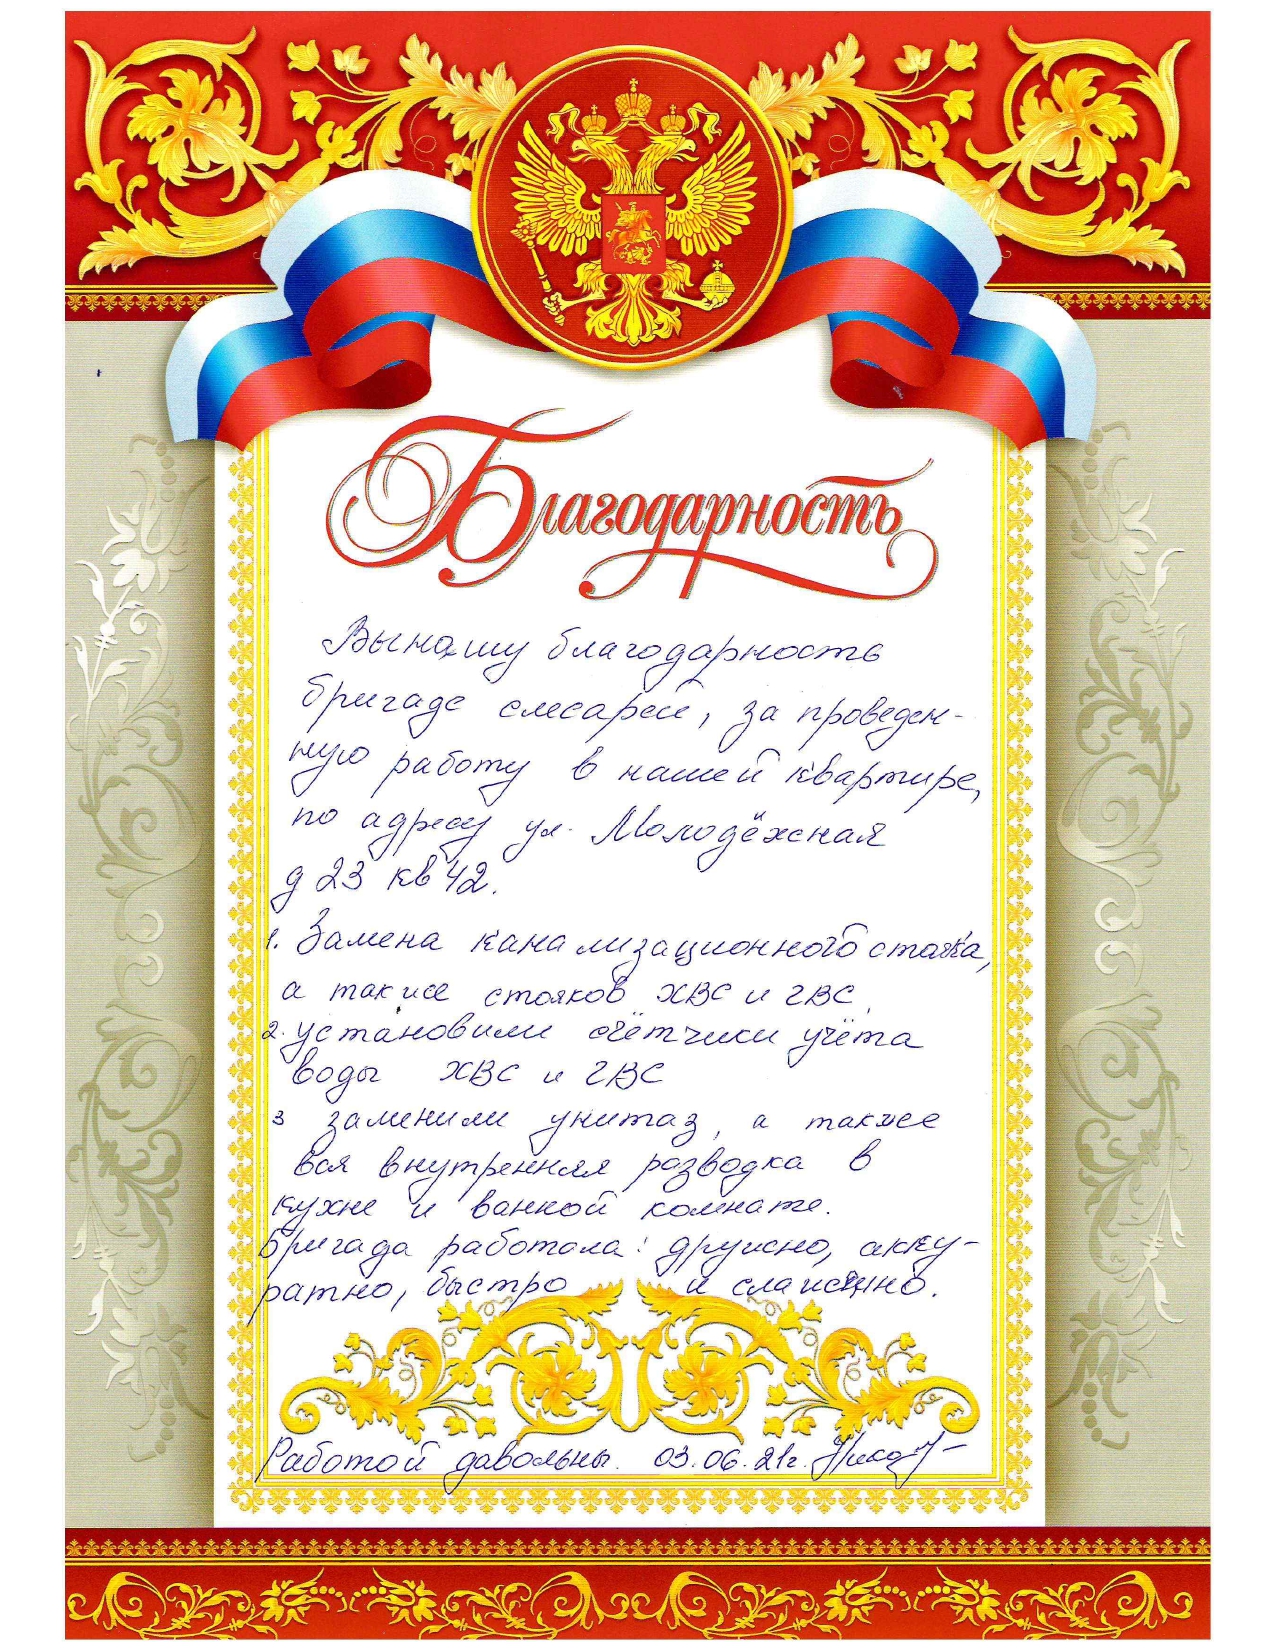 Благодарность
Вынашу благодарность
бригаде слесарей, за проведен-
ную работу в нашей квартире,
по адресу ул. Молодёжная
д 23 кв 42.
1. Замена канализационного стояка,
а также стояков ХВС и ГВС
2. установили счётчики учёта
воды ХВС и ГВС
3 заменили унитаз, а также
вся внутренняя розводка в
кухне и ванной комнате.
Бригада работала: дружно, акку-
ратно, быстро и слаженно.
Работой давольны. 03.06.21г.